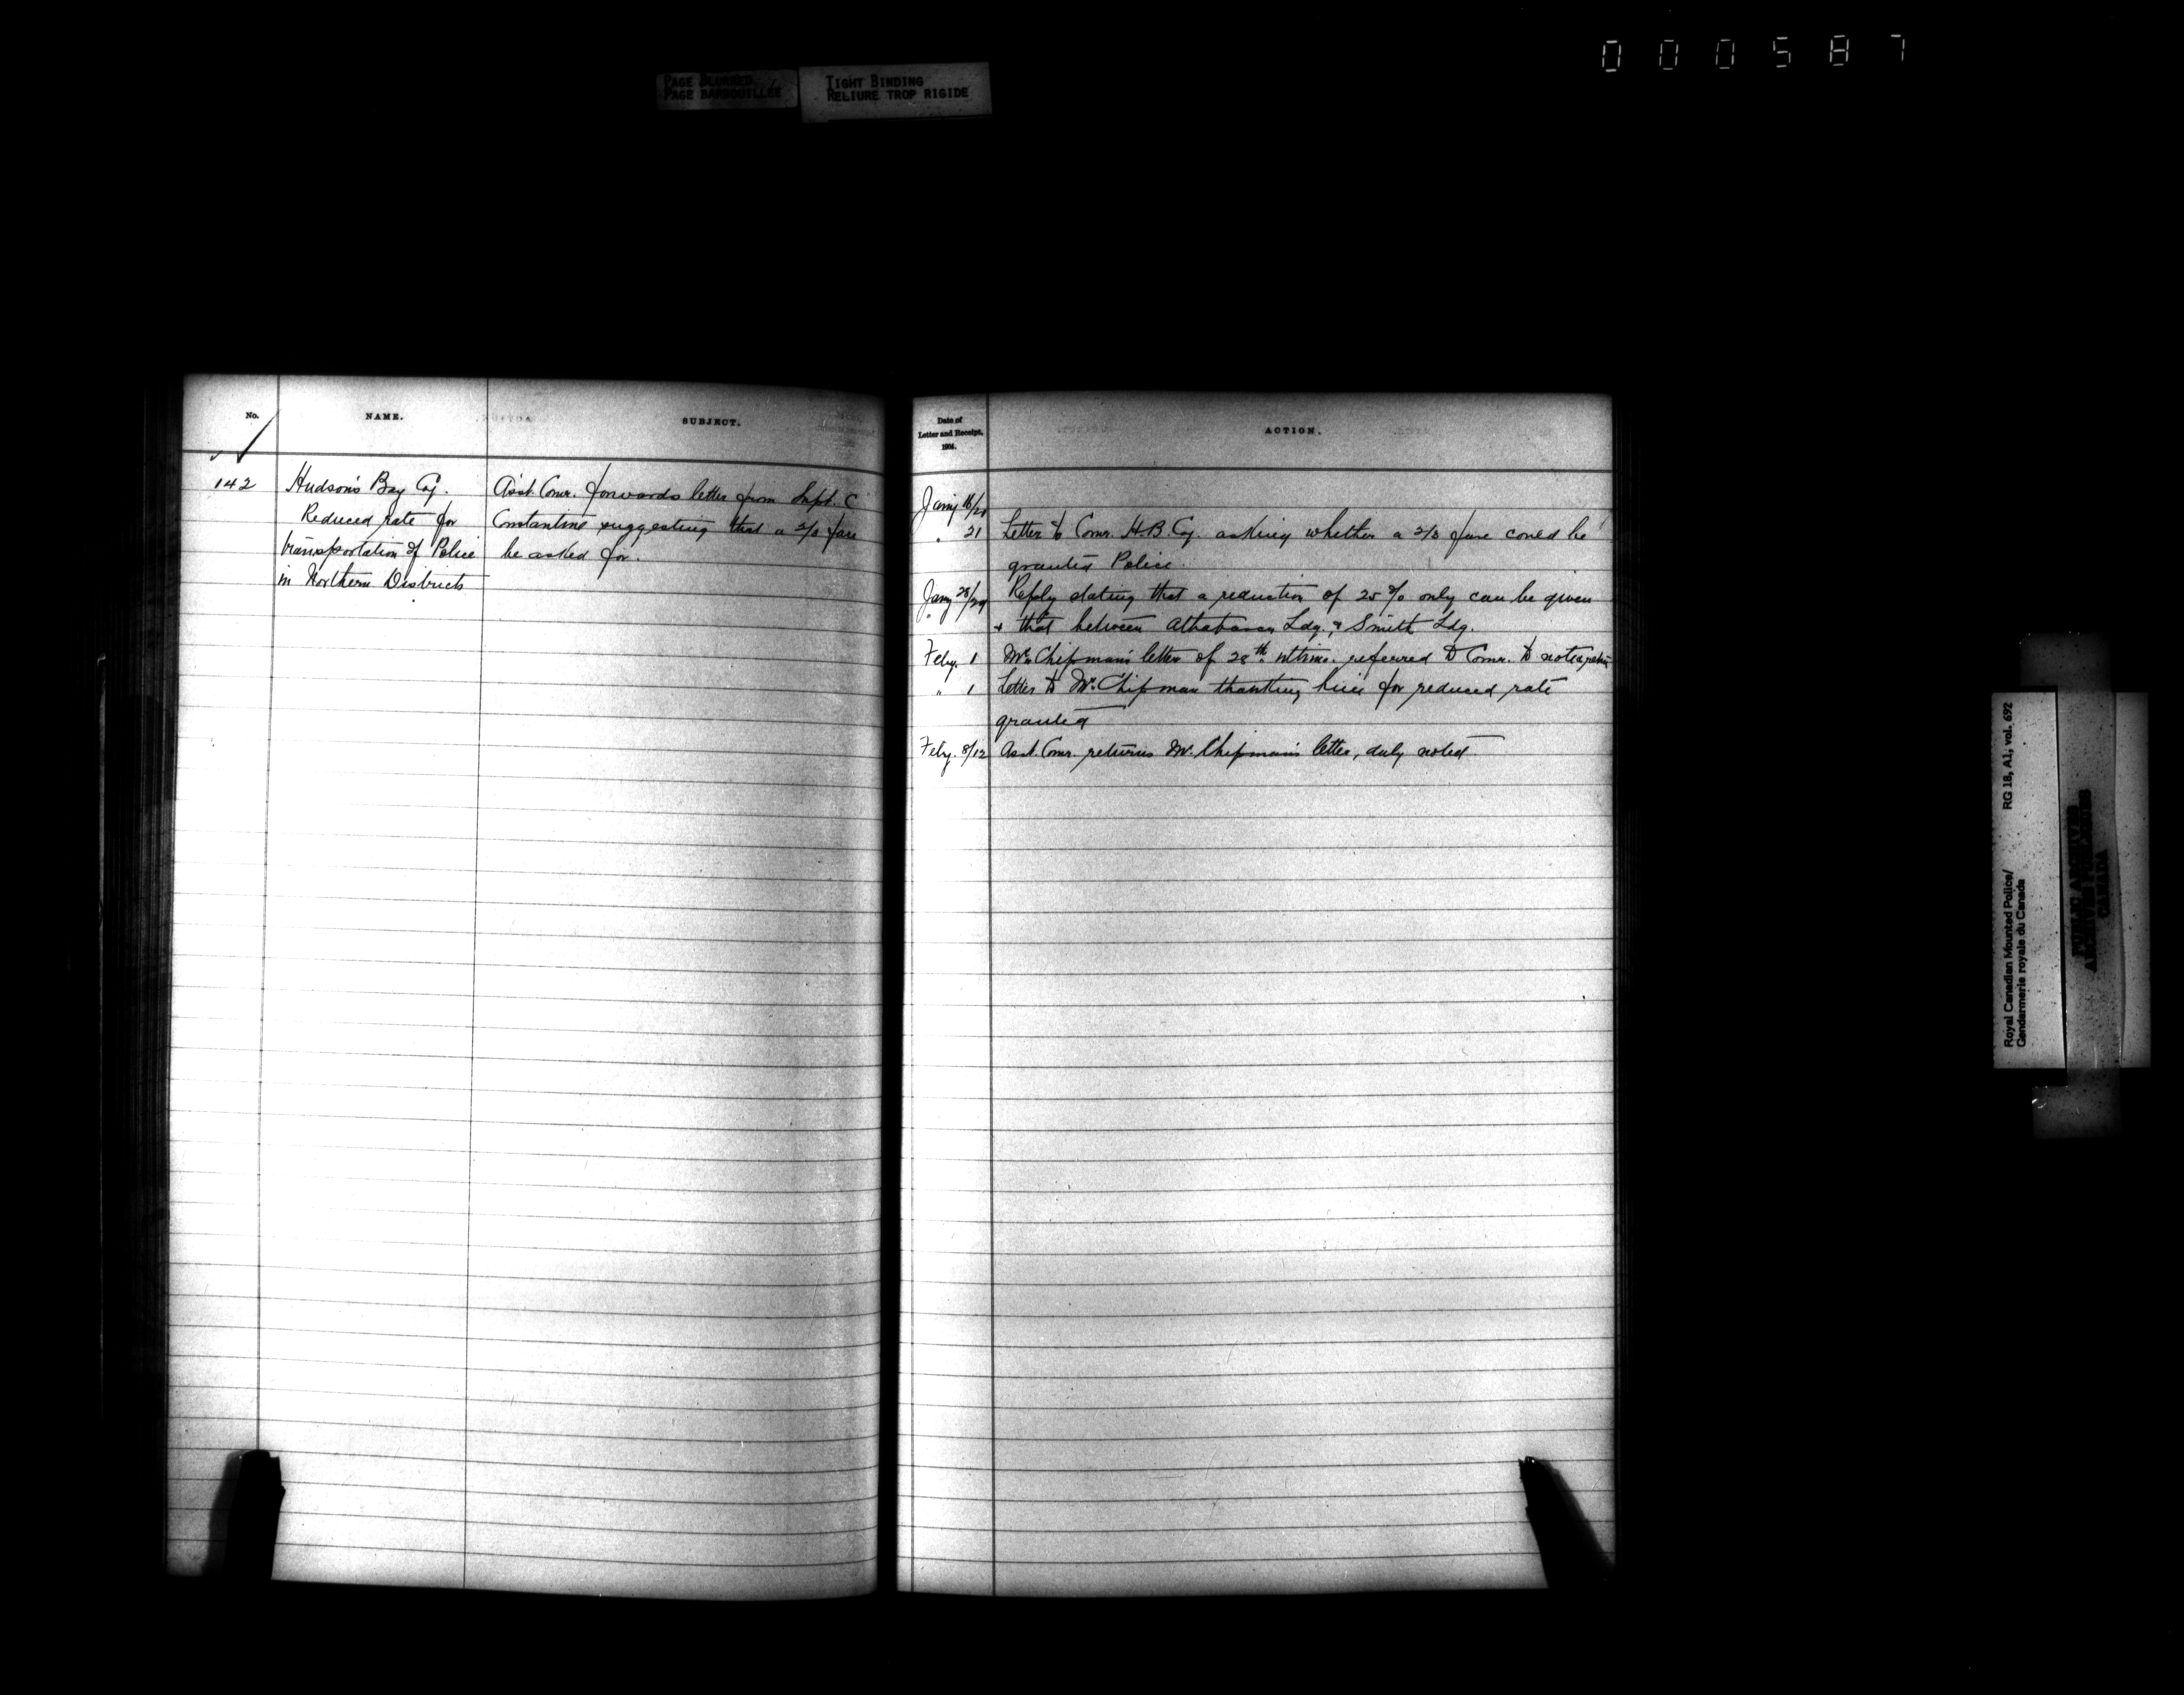 000587
PAGE BLURRED
PAGE BARBOUILLÉE
TIGHT BINDING
RELIURE TROP RIGIDE
No.
NAME.
SUBJECT.
142
Hudson's Bay Cy.
Reduced rate for
transportation of Police
in Northern Districts
Asst. Comr. forwards letter from Supt. C
Constantine suggesting that a 2/3 fare
be asked for.
Date of
Letter and Receipt,
1904.
ACTION.
Jany 16/20
" 21 Letter to Comr. H.B. Cy. asking whether a 2/3 fare could be
granted Police.
Jany 28/29 Reply stating that a reduction of 25% only can be given
+ that between Athabasca Ldg. & Smith Ldg.
Feby. 1 Mr. Chipman's letter of 28th ultimo. referred to Comr. to note & return
" 1 Letter to Mr. Chipman thanking him for reduced rate
granted
Feby. 8/12 Asst. Comr. returns Mr. Chipman's letter, duly noted
Royal Canadian Mounted Police/
Gendarmerie royale du Canada
RG 18, A1, vol. 692
PUBLIC ARCHIVES
ARCHIVES PUBLIQUES
CANADA